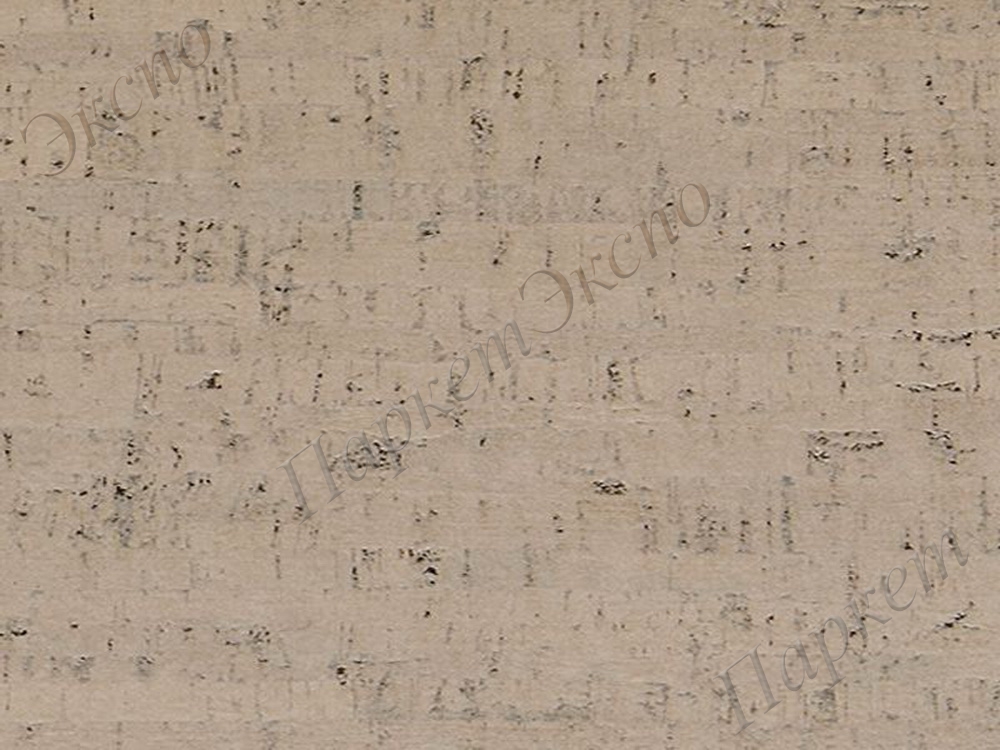 Экспо
ПаркетЭкспо
Паркет